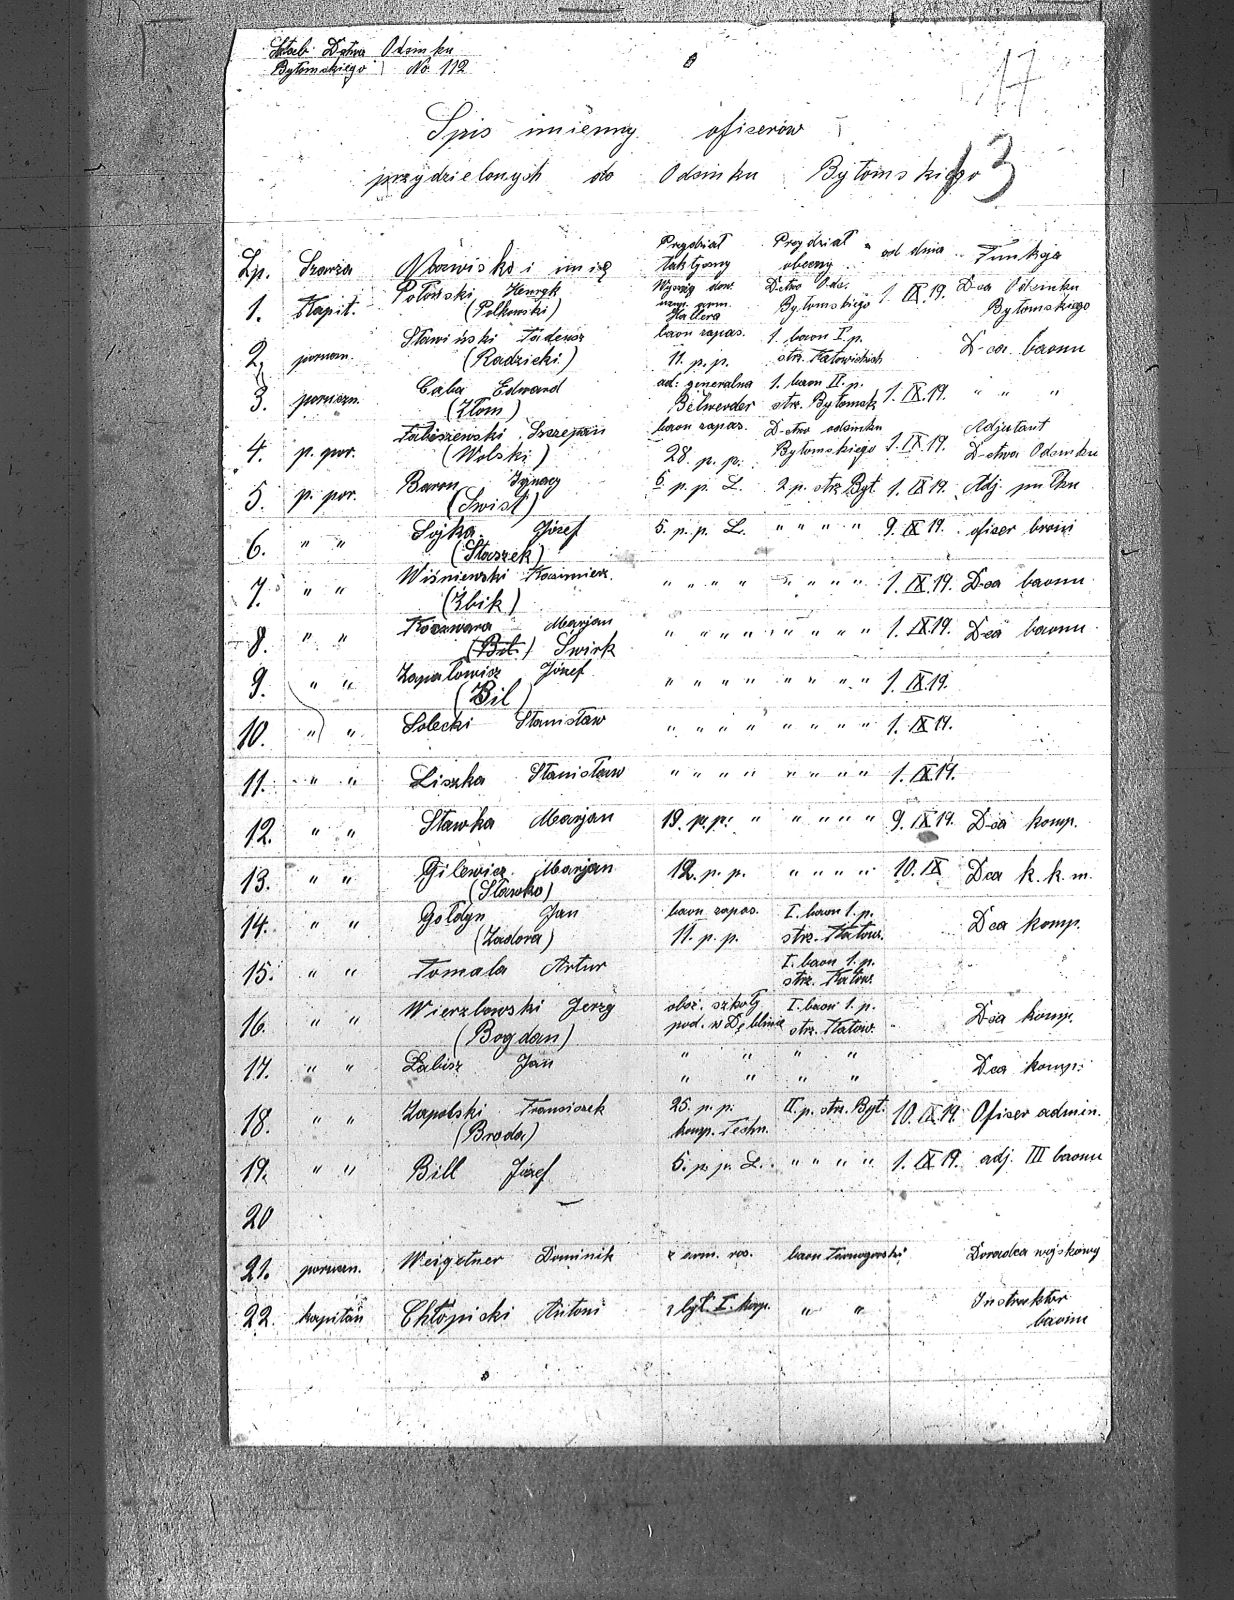 Sztab Dstwa Odcinku
Bytomskiego No 112
17
Spis imienny oficerów
przydzielonych do Odcinku Bytomskiego
13
Lp. Szarża Nazwisko i imię Przydział taktyczny Przydział obecny od dnia Funkcja
1. Kapit. Połoński Henryk (Polkowski) Wywiad dow. Hallera D-ctwo Ods. Bytomskiego 1. IX. 19. D-ca Odcinku Bytomskiego
2. poruczn. Sławiński Tadeusz (Radzicki) baon zapas. 11. p. p. 1. baon I p. strz. Katowickich D-ca baonu
3. poruczn. Caba Edward (Złom) ad: generalna Belweder 1. baon II. p. strz. Bytomsk 1. IX. 19. " " "
4. p. por. Fabiszewski Szczepan (Wolski) baon zapas. 28. p. p. D-ctwo odcinku Bytomskiego 1. IX 19. Adjutant D-ctwa Odcinku
5. p. por. Baron Ignacy (Świst) 6 p. p. L. 2 p. strz Byt. 1. IX 19. Adj. pułku
6. " " Sojka Józef (Staszek) 5. p. p. L. " " " " 9. IX 19. oficer broni
7. " " Wiśniewski Kazimierz (Żbik) " " " " " " " " 1. IX. 19. D-ca baonu
8. " " Koczwara Marjan (Bil.) Świrk " " " " " " " " 1. IX 19. D-ca baonu
9. " " Zapałowicz Józef (Bil) " " " " " " " " 1. IX 19.
10. " " Solecki Stanisław " " " " " " " " 1. IX 19.
11. " " Liszka Stanisław " " " " " " " " 1. IX 19.
12. " " Sławka Marjan 19. p. p. " " " " " 9. IX 19. D-ca komp.
13. " " Gilewicz Marjan (Sławko) 12. p. p. " " " " 10. IX Dca k. k. m.
14. " " Gołdyn Jan (Zadora) baon zapas. 11. p. p. I. baon 1. p. strz. Katow. D-ca komp.
15. " " Tomala Artur I. baon 1. p. strz. Katow.
16. " " Wierzbowski Jerzy (Bogdan) obóz. szkoły pod. w Dęblinie I. baon 1. p. strz. Katow. D-ca komp.
17. " " Łabisz Jan " " " " D-ca komp.
" " " "
18. " " Zapolski Franciszek (Broda) 25. p. p. komp. Techn. II. p. strz. Byt. 10. IX 19. Oficer admin.
19. " " Bill Józef 5. p. p. L. " " " " 1. IX. 19. adj. III baonu
20
21. poruczn. Weigetner Dominik z arm. ros. baon Tarnogorski Doradca wojskowy
22. kapitan Chłopicki Antoni z lgt. I. korp. " " Instruktor baonu